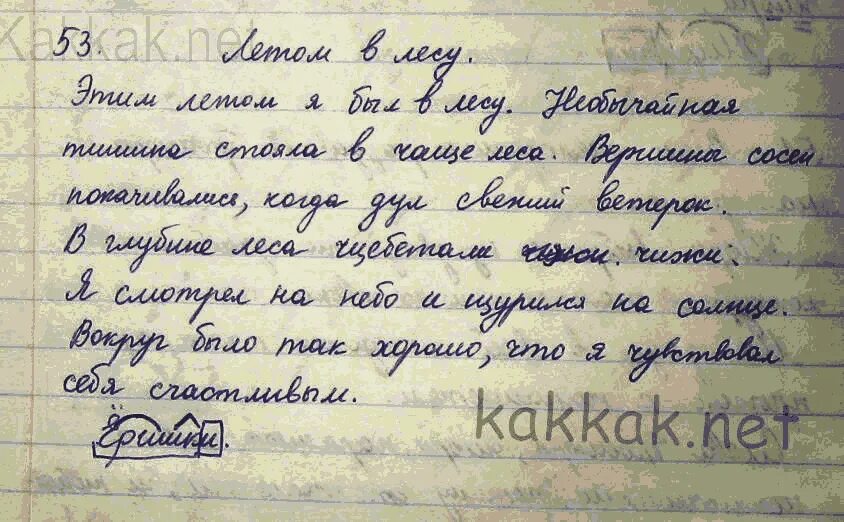 Kakkak.net
53. Летом в лесу.
Этим летом я был в лесу. Необычайная
тишина стояла в чаще леса. Вершины сосен
покачивались, когда дул свежий ветерок.
В глубине леса щебетали чижи.
Я смотрел на небо и щурился на солнце.
Вокруг было так хорошо, что я чувствовал
себя счастливым.
kakkak.net
Ёршики.